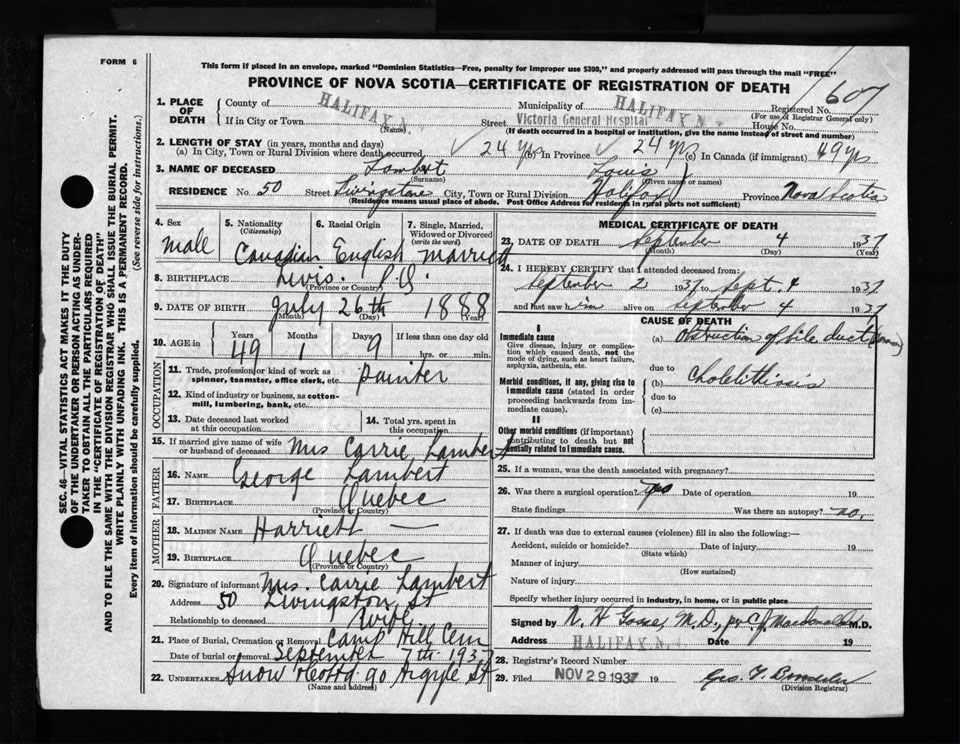 FORM 6
This form if placed in an envelope, marked "Dominion Statistics—Free, penalty for improper use $300," and properly addressed will pass through the mail "FREE"
PROVINCE OF NOVA SCOTIA—CERTIFICATE OF REGISTRATION OF DEATH
607
1. PLACE OF DEATH
County of HALIFAX N. Municipality of HALIFAX N. Registered No.
(For use of Registrar General only)
If in City or Town (Name) Street Victoria General Hospital House No.
(If death occurred in a hospital or institution, give the name instead of street and number)
2. LENGTH OF STAY (in years, months and days)
(a) In City, Town or Rural Division where death occurred 24 yrs (b) In Province 24 yrs (c) In Canada (if immigrant) 49 yrs
3. NAME OF DECEASED Lambert Louis
(Surname) (Given name or names)
RESIDENCE No. 50 Street Livingstone City, Town or Rural Division Halifax Province Nova Scotia
(Residence means usual place of abode. Post Office Address for residents in rural parts not sufficient)
4. Sex 5. Nationality (Citizenship) 6. Racial Origin 7. Single, Married, Widowed or Divorced (write the word)
Male Canadian English Married
8. BIRTHPLACE Levis. P.Q.
(Province or Country)
9. DATE OF BIRTH July 26th 1888
(Month) (Day) (Year)
10. AGE in Years Months Days If less than one day old
49 1 9 hrs. or min.
OCCUPATION
11. Trade, profession or kind of work as spinner, teamster, office clerk, etc. Painter
12. Kind of industry or business, as cotton-mill, lumbering, bank, etc.
13. Date deceased last worked at this occupation 14. Total yrs. spent in this occupation
15. If married give name of wife or husband of deceased Mrs Carrie Lambert
FATHER
16. NAME George Lambert
17. BIRTHPLACE Quebec
(Province or Country)
MOTHER
18. MAIDEN NAME Harriett —
19. BIRTHPLACE Quebec
(Province or Country)
20. Signature of informant Mrs. Carrie Lambert
Address 50 Livingston St
Relationship to deceased Wife
21. Place of Burial, Cremation or Removal Camp Hill Cem
Date of burial or removal September 7th 1937
22. UNDERTAKER Snow 90 Argyle St
(Name and address)
MEDICAL CERTIFICATE OF DEATH
23. DATE OF DEATH September 4 1937
(Month) (Day) (Year)
24. I HEREBY CERTIFY that I attended deceased from:
September 2 1937 to Sept. 4 1937
and last saw him alive on September 4 1937
CAUSE OF DEATH
I
Immediate cause
Give disease, injury or complication which caused death, not the mode of dying, such as heart failure, asphyxia, asthenia, etc.
(a) Obstruction of bile duct
due to
Morbid conditions, if any, giving rise to immediate cause (stated in order proceeding backwards from immediate cause).
(b) Cholelithiasis
due to
(c)
II
Other morbid conditions (if important) contributing to death but not causally related to Immediate cause.
25. If a woman, was the death associated with pregnancy?
26. Was there a surgical operation? Date of operation 19
State findings Was there an autopsy? no.
27. If death was due to external causes (violence) fill in also the following:—
Accident, suicide or homicide? Date of injury 19
(State which)
Manner of injury
(How sustained)
Nature of injury
Specify whether injury occurred in industry, in home, or in public place
Signed by N. H. Gosse, M.D., per C. J. Macdonald M.D.
Address HALIFAX N. Date 19
28. Registrar's Record Number
29. Filed NOV 29 1937 19 Geo.
(Division Registrar)
SEC. 46—VITAL STATISTICS ACT MAKES IT THE DUTY
OF THE UNDERTAKER OR PERSON ACTING AS UNDER-
TAKER TO OBTAIN ALL THE PARTICULARS REQUIRED
IN THE "CERTIFICATE OF REGISTRATION OF DEATH"
AND TO FILE THE SAME WITH THE DIVISION REGISTRAR WHO SHALL ISSUE THE BURIAL PERMIT.
WRITE PLAINLY WITH UNFADING INK. THIS IS A PERMANENT RECORD.
Every item of information should be carefully supplied. (See reverse side for instructions.)